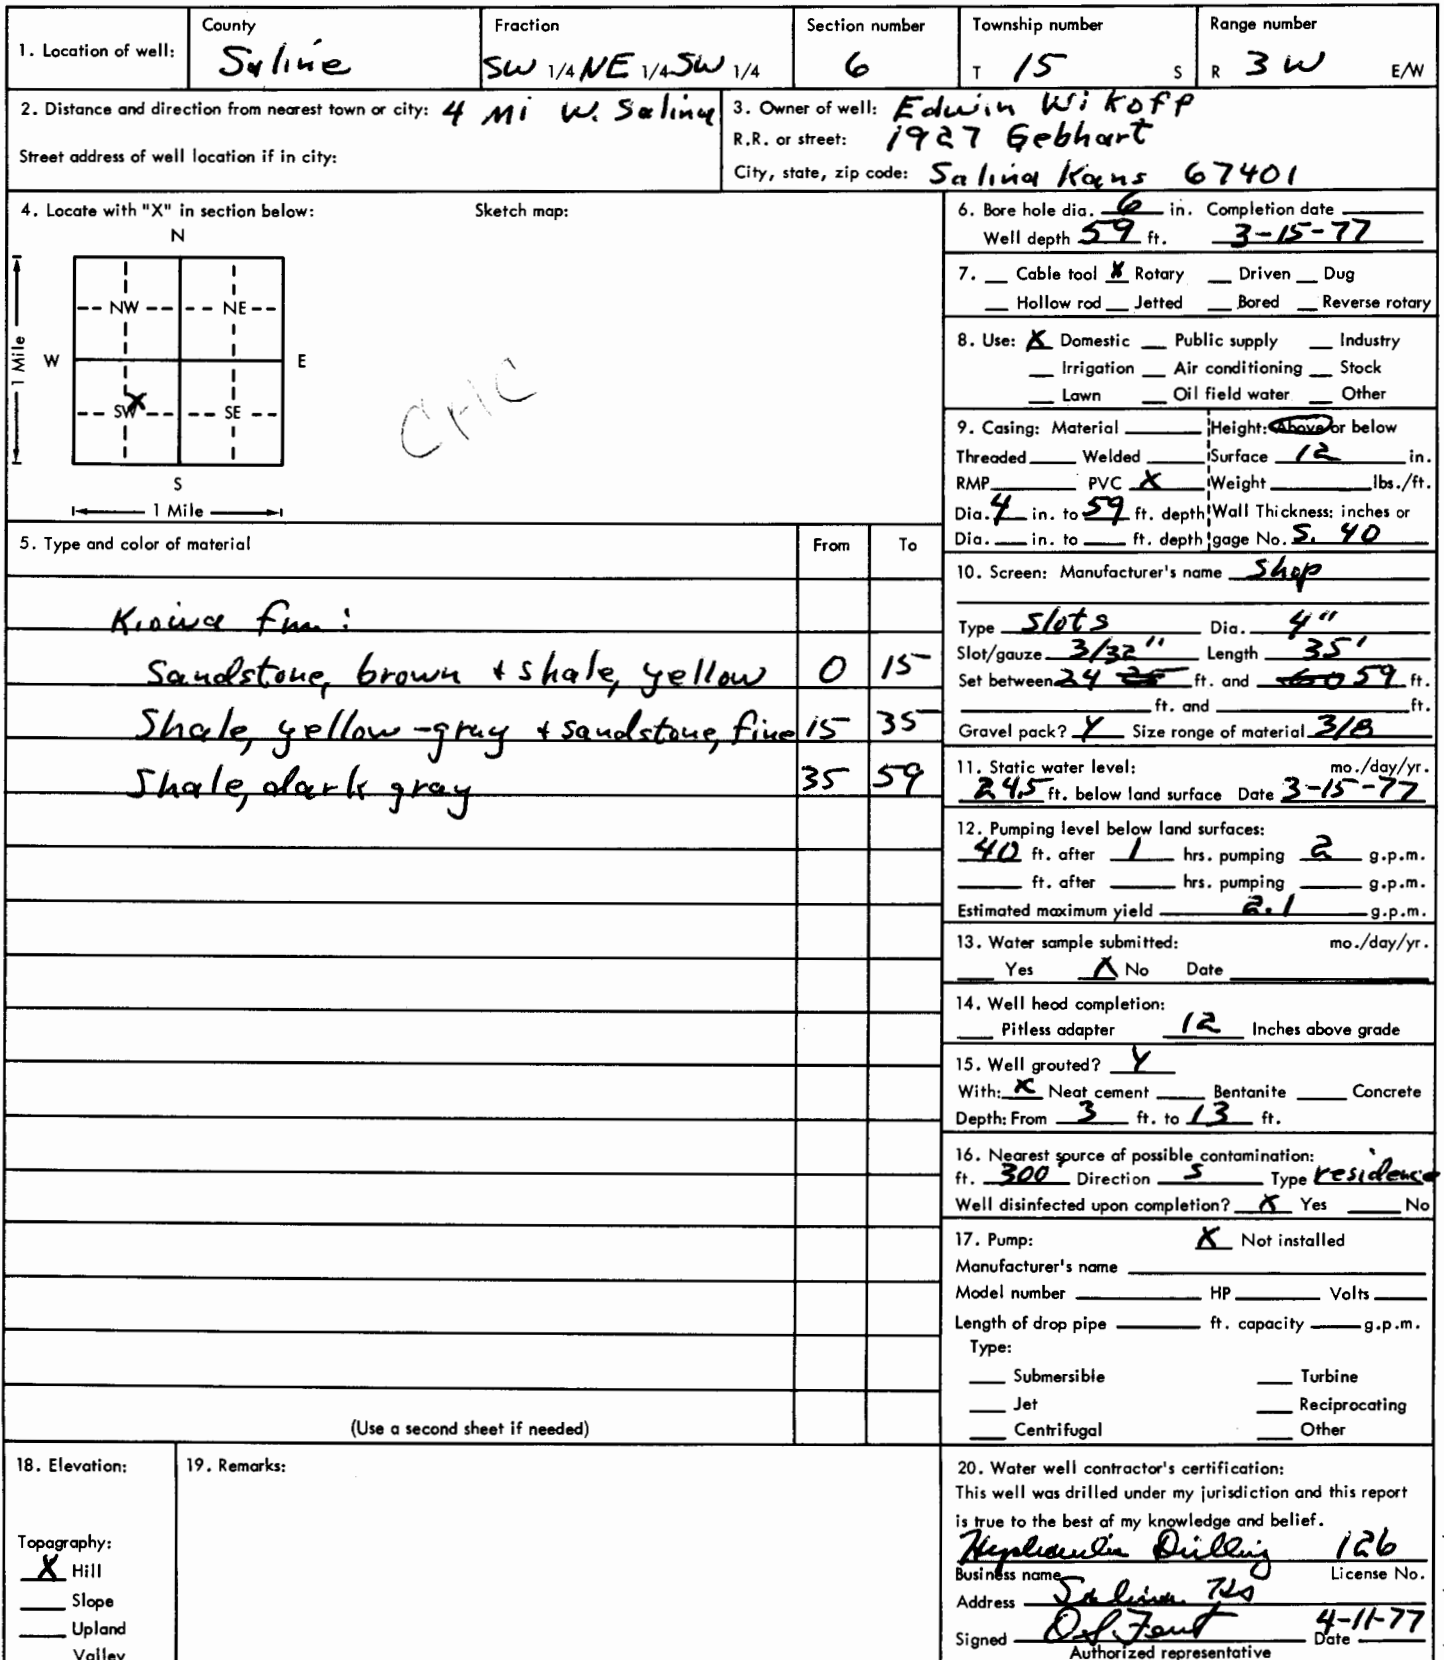 1. Location of well: County Saline Fraction SW 1/4 NE 1/4 SW 1/4 Section number 6 Township number T 15 S Range number R 3 W E/W
2. Distance and direction from nearest town or city: 4 Mi W. Salina
Street address of well location if in city:
3. Owner of well: Edwin Wikoff
R.R. or street: 1927 Gebhart
City, state, zip code: Salina Kans 67401
4. Locate with "X" in section below: Sketch map:
N
NW NE
W E
1 Mile
SW X SE
S
1 Mile
5. Type and color of material From To
Kiowa fm:
Sandstone, brown + shale, yellow 0 15
Shale, yellow-gray + sandstone, fine 15 35
Shale, dark gray 35 59
(Use a second sheet if needed)
6. Bore hole dia. 6 in. Completion date
Well depth 59 ft. 3-15-77
7. __ Cable tool X Rotary __ Driven __ Dug
__ Hollow rod __ Jetted __ Bored __ Reverse rotary
8. Use: X Domestic __ Public supply __ Industry
__ Irrigation __ Air conditioning __ Stock
__ Lawn __ Oil field water __ Other
9. Casing: Material ____ Height: Above or below
Threaded ____ Welded ____ Surface 12 in.
RMP ____ PVC X Weight ____ lbs./ft.
Dia. 4 in. to 59 ft. depth Wall Thickness: inches or
Dia. __ in. to __ ft. depth gage No. S. 40
10. Screen: Manufacturer's name Shop
Type Slots Dia. 4"
Slot/gauze 3/32" Length 35'
Set between 24 ft. and 59 ft.
____ ft. and ____ ft.
Gravel pack? Y Size range of material 3/8
11. Static water level: mo./day/yr.
24.5 ft. below land surface Date 3-15-77
12. Pumping level below land surfaces:
40 ft. after 1 hrs. pumping 2 g.p.m.
____ ft. after ____ hrs. pumping ____ g.p.m.
Estimated maximum yield 2.1 g.p.m.
13. Water sample submitted: mo./day/yr.
__ Yes X No Date ____
14. Well head completion:
__ Pitless adapter 12 Inches above grade
15. Well grouted? Y
With: X Neat cement ____ Bentanite ____ Concrete
Depth: From 3 ft. to 13 ft.
16. Nearest source of possible contamination:
ft. 300 Direction S Type residence
Well disinfected upon completion? X Yes ____ No
17. Pump: X Not installed
Manufacturer's name ____
Model number ____ HP ____ Volts ____
Length of drop pipe ____ ft. capacity ____ g.p.m.
Type:
__ Submersible __ Turbine
__ Jet __ Reciprocating
__ Centrifugal __ Other
18. Elevation:
Topography:
X Hill
__ Slope
__ Upland
Valley
19. Remarks:
20. Water well contractor's certification:
This well was drilled under my jurisdiction and this report
is true to the best of my knowledge and belief.
Drilling 126
Business name License No.
Address Salina Ks
Signed 4-11-77 Date
Authorized representative